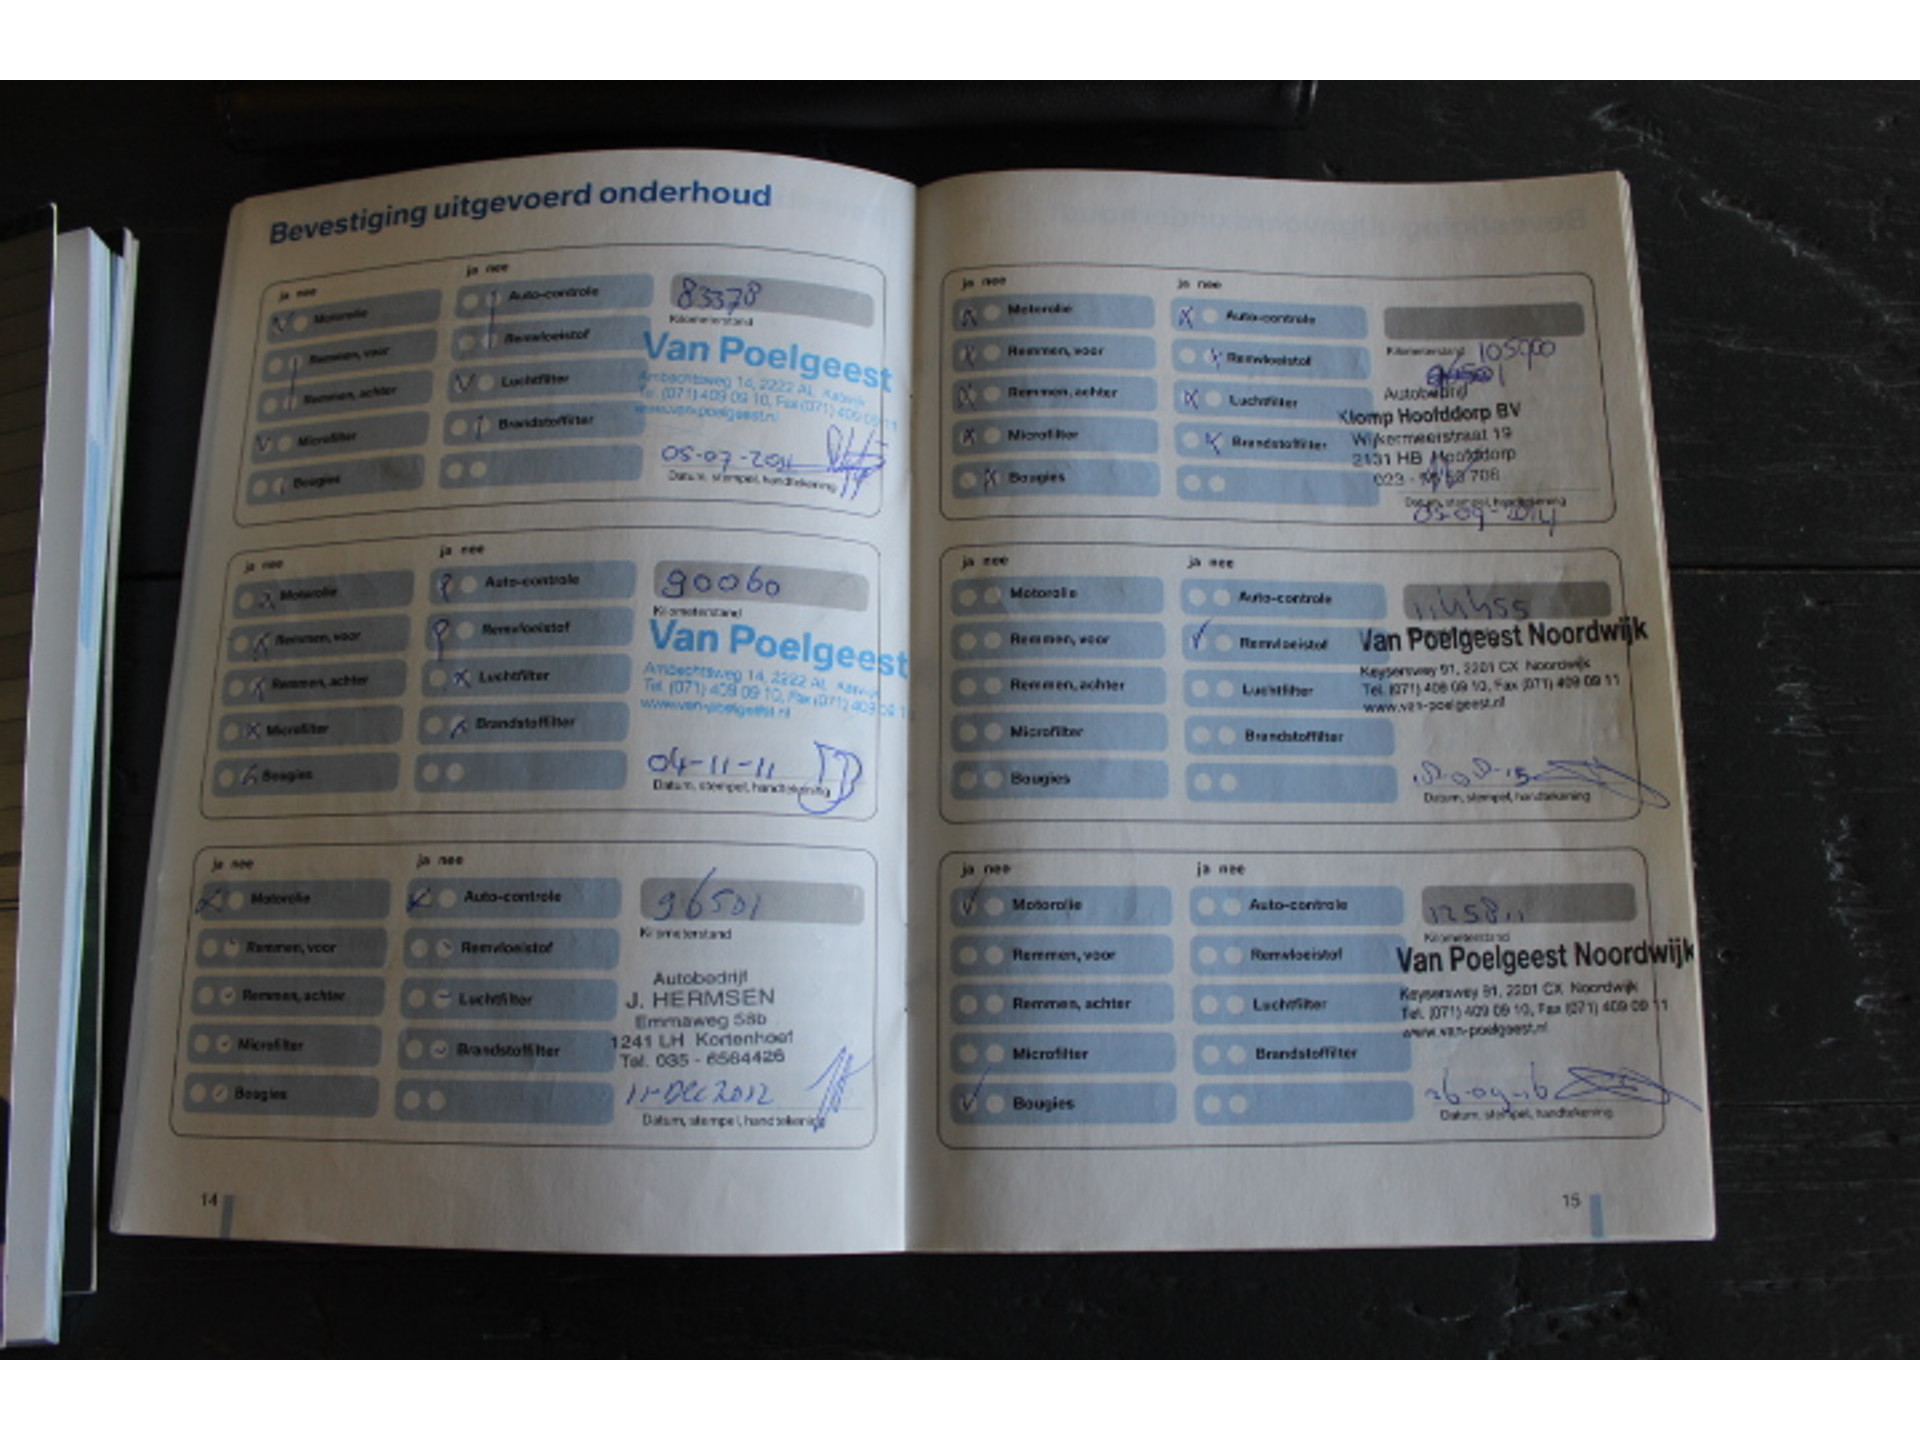 Bevestiging uitgevoerd onderhoud
ja nee
ja nee
Motorolie
Auto-controle
83378
Kilometerstand
Remmen, voor
Remvloeistof
Van Poelgeest
Ambachtsweg 14, 2222 AL Katwijk
Remmen, achter
Luchtfilter
Tel. (071) 409 09 10, Fax (071) 409 09 11
www.van-poelgeest.nl
Microfilter
Brandstoffilter
05-07-2011
Bougies
Datum, stempel, handtekening
ja nee
ja nee
Motorolie
Auto-controle
90060
Kilometerstand
Remmen, voor
Remvloeistof
Van Poelgeest
Ambachtsweg 14, 2222 AL Katwijk
Remmen, achter
Luchtfilter
Tel. (071) 409 09 10, Fax (071) 409 09 11
www.van-poelgeest.nl
Microfilter
Brandstoffilter
04-11-11
Bougies
Datum, stempel, handtekening
ja nee
ja nee
Motorolie
Auto-controle
96501
Kilometerstand
Remmen, voor
Remvloeistof
Autobedrijf
Remmen, achter
Luchtfilter
J. HERMSEN
Emmaweg 58b
Microfilter
Brandstoffilter
1241 LH Kortenhoef
Tel. 035 - 6564426
Bougies
11-Dec 2012
Datum, stempel, handtekening
14
ja nee
ja nee
Motorolie
Auto-controle
Kilometerstand
105900
Remmen, voor
Remvloeistof
Remmen, achter
Luchtfilter
Autobedrijf
Klomp Hoofddorp BV
Microfilter
Brandstoffilter
Wijkermeerstraat 19
2131 HB Hoofddorp
Bougies
Datum, stempel, handtekening
05-09-2014
ja nee
ja nee
Motorolie
Auto-controle
114455
Remmen, voor
Remvloeistof
Van Poelgeest Noordwijk
Keyserswey 91, 2201 CX Noordwijk
Remmen, achter
Luchtfilter
Tel. (071) 409 09 10, Fax (071) 409 09 11
www.van-poelgeest.nl
Microfilter
Brandstoffilter
Bougies
Datum, stempel, handtekening
ja nee
ja nee
Motorolie
Auto-controle
125811
Kilometerstand
Remmen, voor
Remvloeistof
Van Poelgeest Noordwijk
Keyserswey 91, 2201 CX Noordwijk
Remmen, achter
Luchtfilter
Tel. (071) 409 09 10, Fax (071) 409 09 11
www.van-poelgeest.nl
Microfilter
Brandstoffilter
26-04-16
Bougies
Datum, stempel, handtekening
15